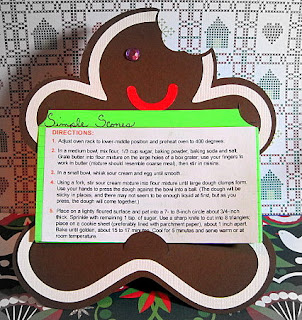 Simple Scones
DIRECTIONS:
1. Adjust oven rack to lower-middle position and preheat oven to 400 degrees.
2. In a medium bowl, mix flour, 1/3 cup sugar, baking powder, baking soda and salt.
Grate butter into flour mixture on the large holes of a box grater; use your fingers to
work in butter (mixture should resemble coarse meal), then stir in raisins.
3. In a small bowl, whisk sour cream and egg until smooth.
4. Using a fork, stir sour cream mixture into flour mixture until large dough clumps form.
Use your hands to press the dough against the bowl into a ball. (The dough will be
sticky in places, and there may not seem to be enough liquid at first, but as you
press, the dough will come together.)
5. Place on a lightly floured surface and pat into a 7- to 8-inch circle about 3/4-inch
thick. Sprinkle with remaining 1 tsp. of sugar. Use a sharp knife to cut into 8 triangles;
place on a cookie sheet (preferably lined with parchment paper), about 1 inch apart.
Bake until golden, about 15 to 17 minutes. Cool for 5 minutes and serve warm or at
room temperature.